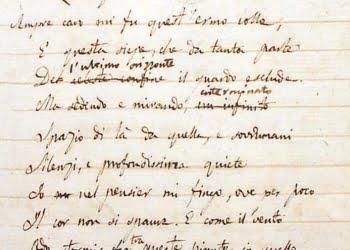 Sempre caro mi fu quest'ermo colle,
E questa siepe, che da tanta parte
l'ultimo orizonte
Del celeste confine il guardo esclude.
interminato
Ma sedendo e mirando, un infinito
Spazio di là da quella, e sovrumani
Silenzi, e profondissima quiete
Io nel pensier mi fingo, ove per poco
Il cor non si spaura. E come il vento
tra
Odo stormir queste piante, io quello